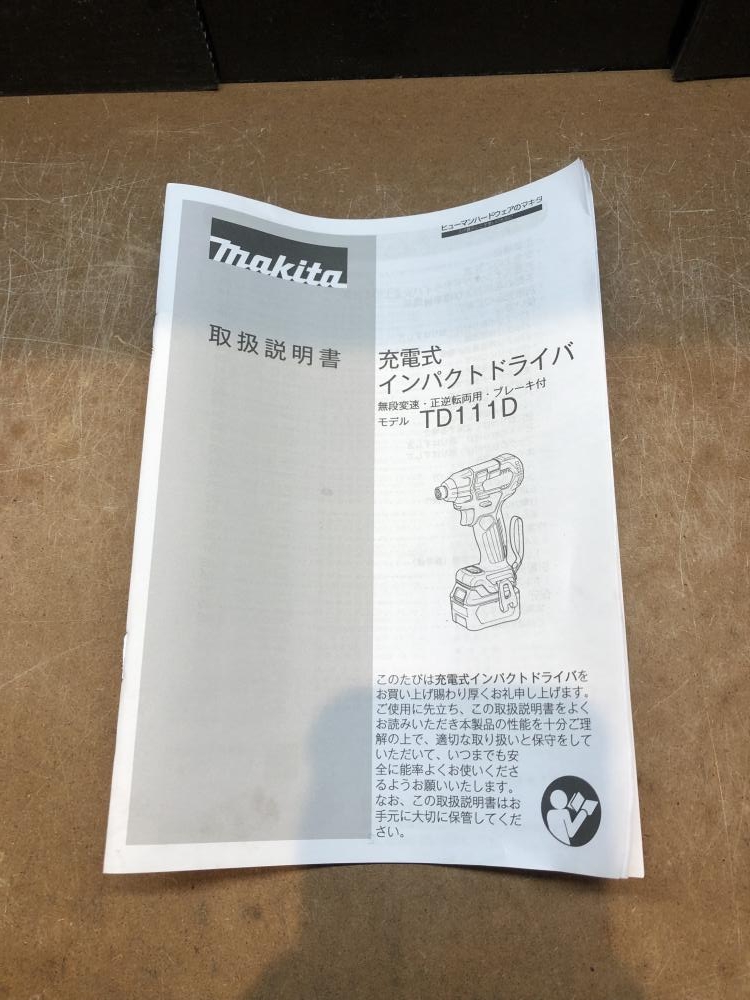 makita
ヒューマンハードウェアのマキタ
取扱説明書
充電式
インパクトドライバ
無段変速・正逆転両用・ブレーキ付
モデル TD111D
このたびは充電式インパクトドライバを
お買い上げ賜わり厚くお礼申し上げます。
ご使用に先立ち、この取扱説明書をよく
お読みいただき本製品の性能を十分ご理
解の上で、適切な取り扱いと保守をして
いただいて、いつまでも安
全に能率よくお使いくださ
るようお願いいたします。
なお、この取扱説明書はお
手元に大切に保管してくだ
さい。